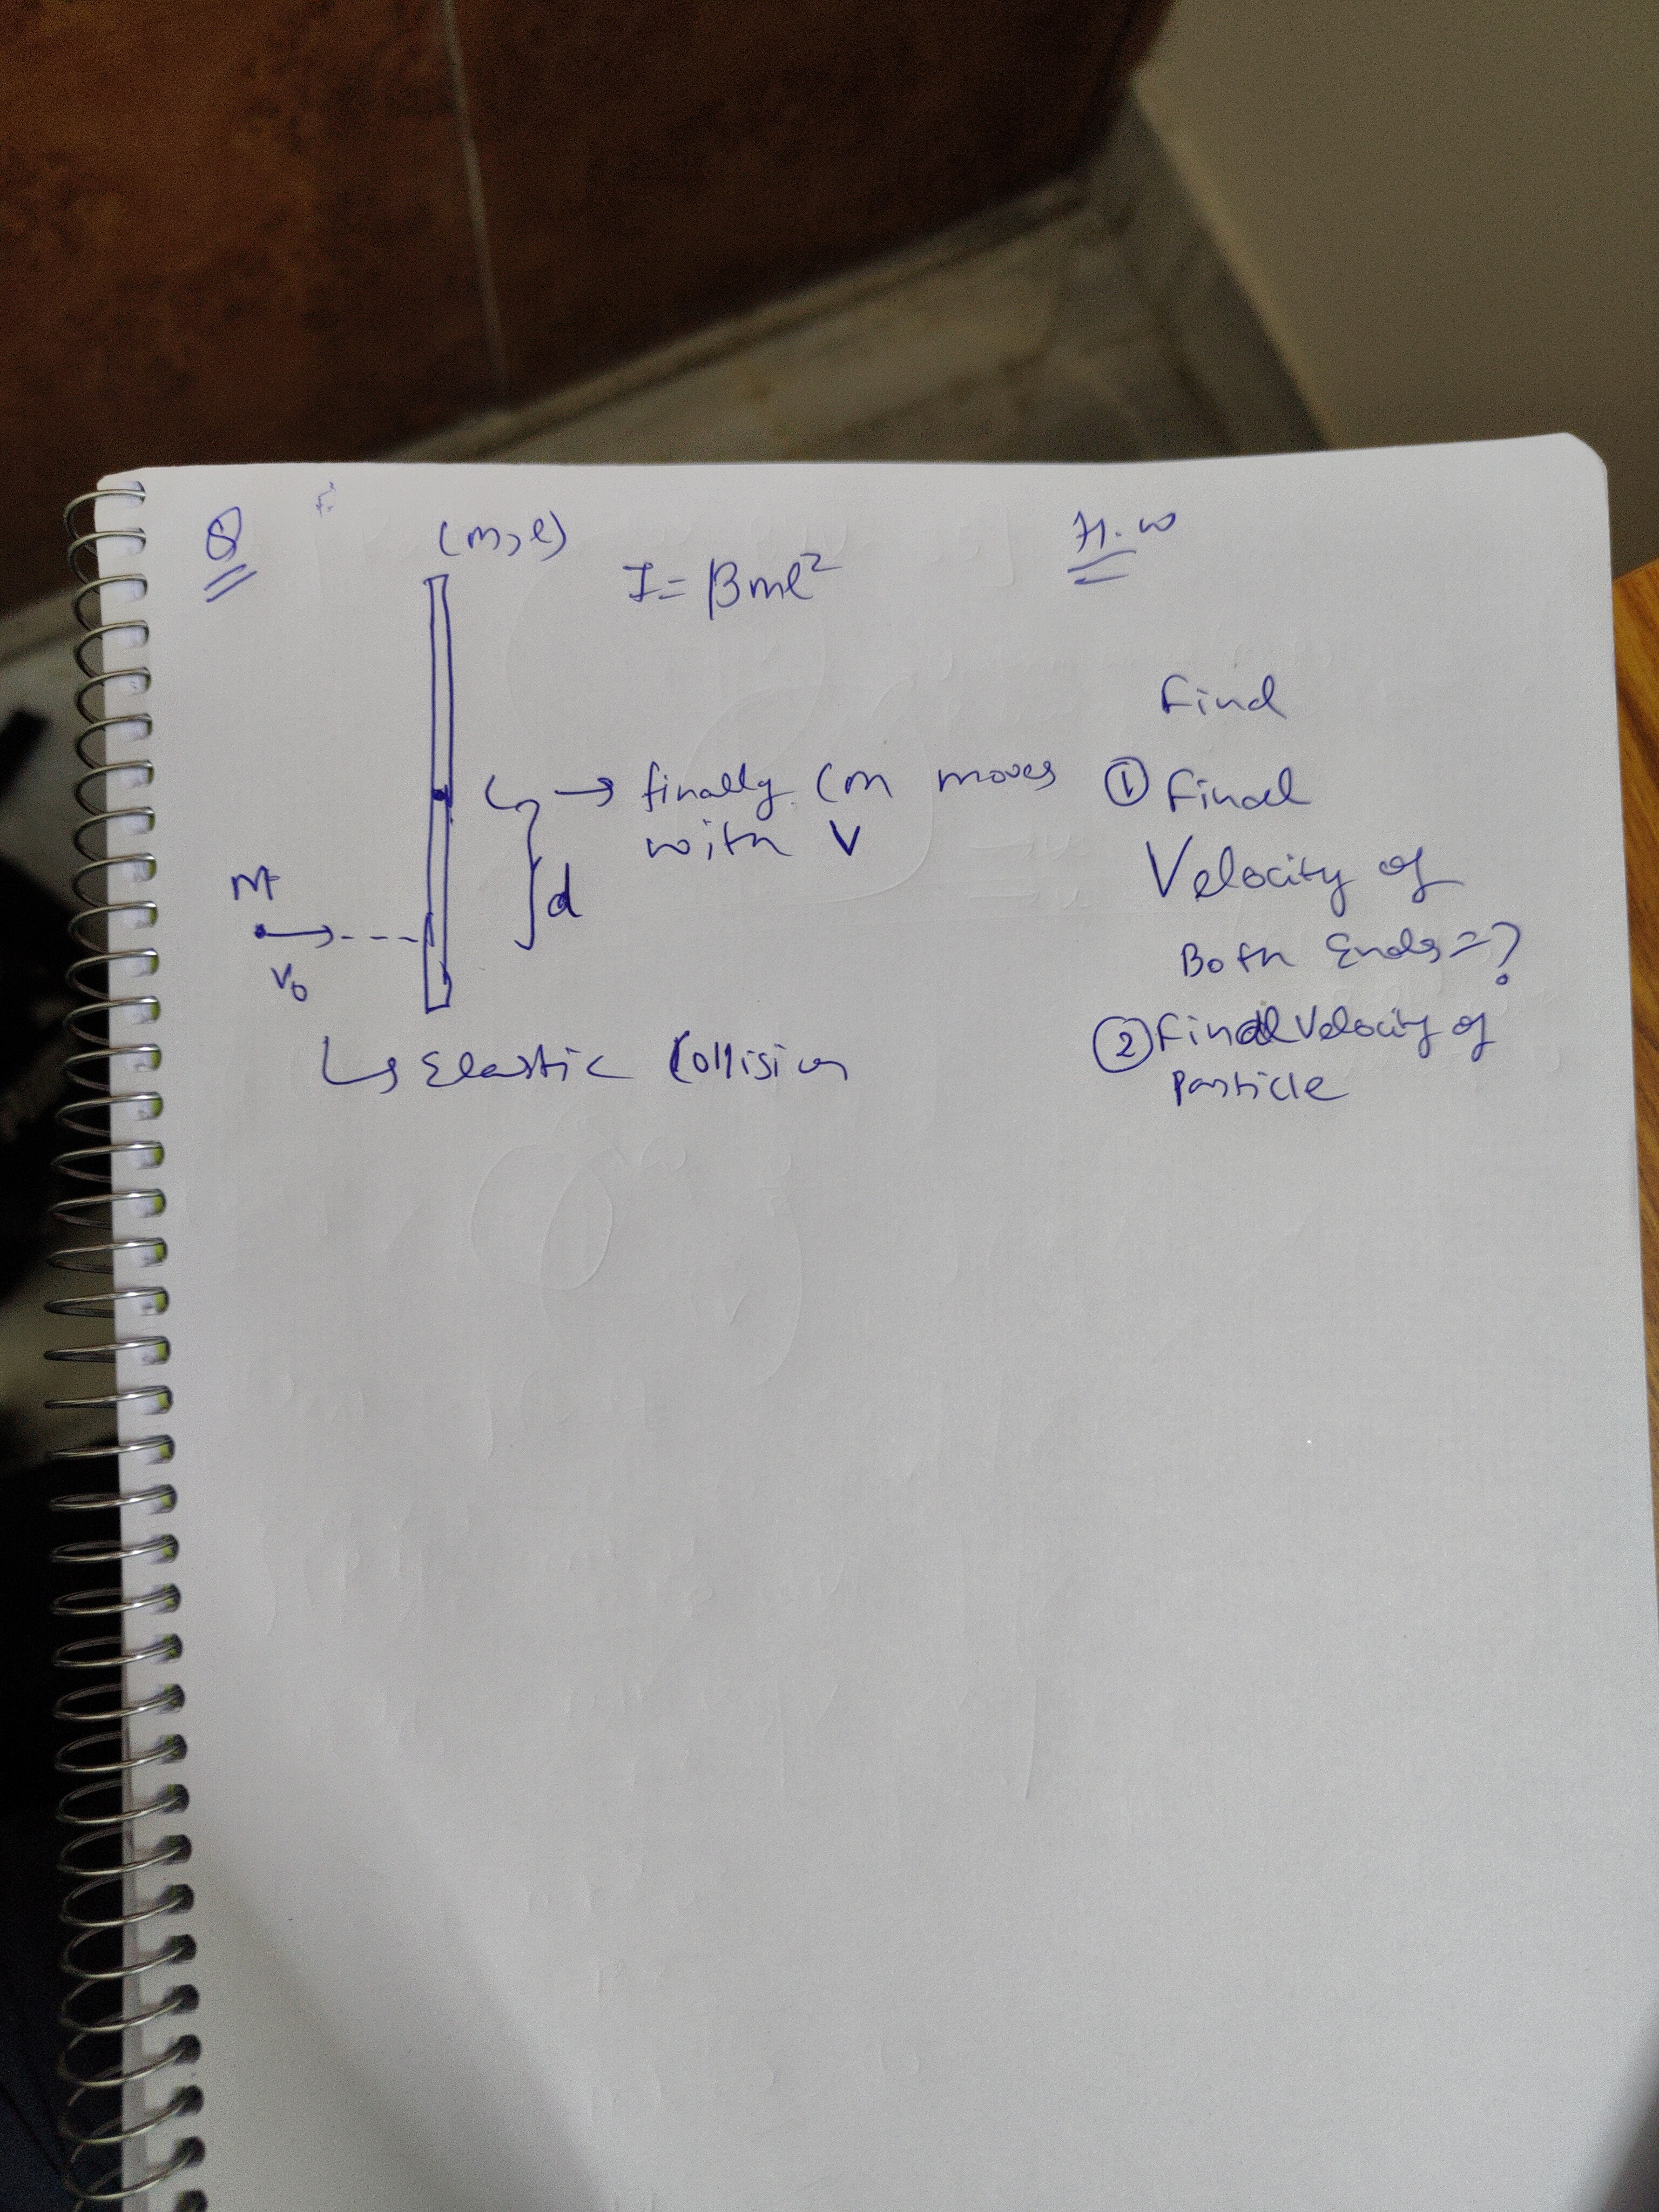 Q
(m, l)
H.W
I = βml²
Find
→ finally CM moves
with V
① Final
Velocity of
Both Ends = ?
d
M
V₀
② Final Velocity of
Particle
↳ Elastic Collision